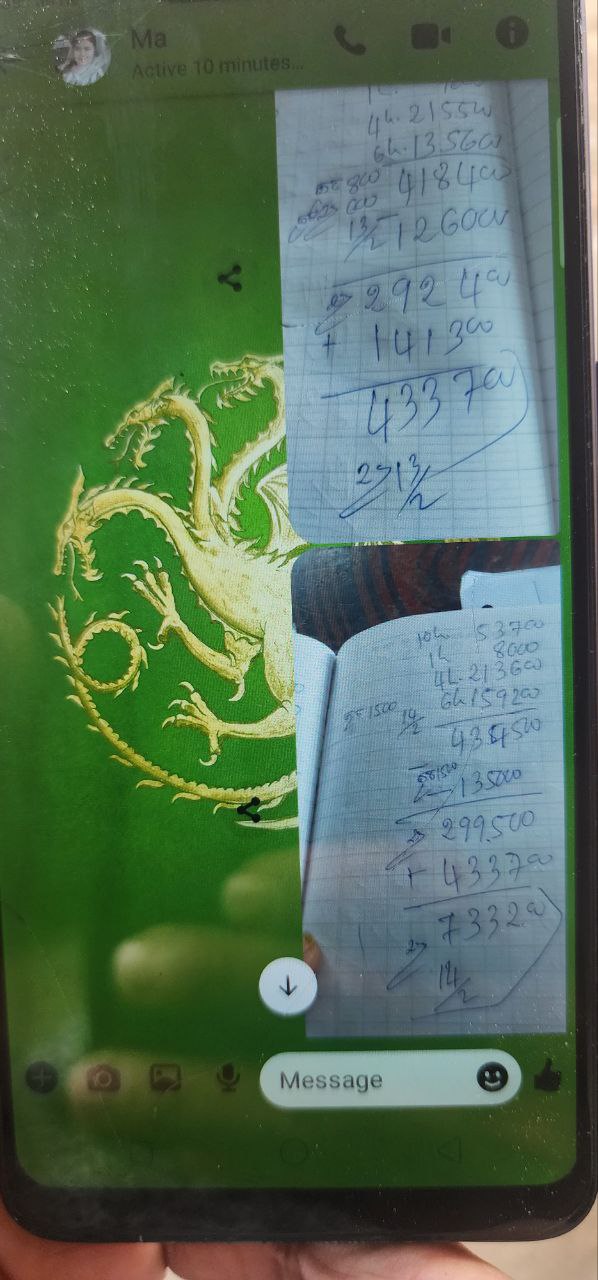 Ma
Active 10 minutes...
4h. 21550
6h. 135600
800 418400
13/2 - 126000
292400
+ 141300
433700
13/2
10h 53700
1h 8000
4h. 213600
6h 159200
1500 14/2 434500
- 135000
299500
+ 433700
733200
14/2
Message